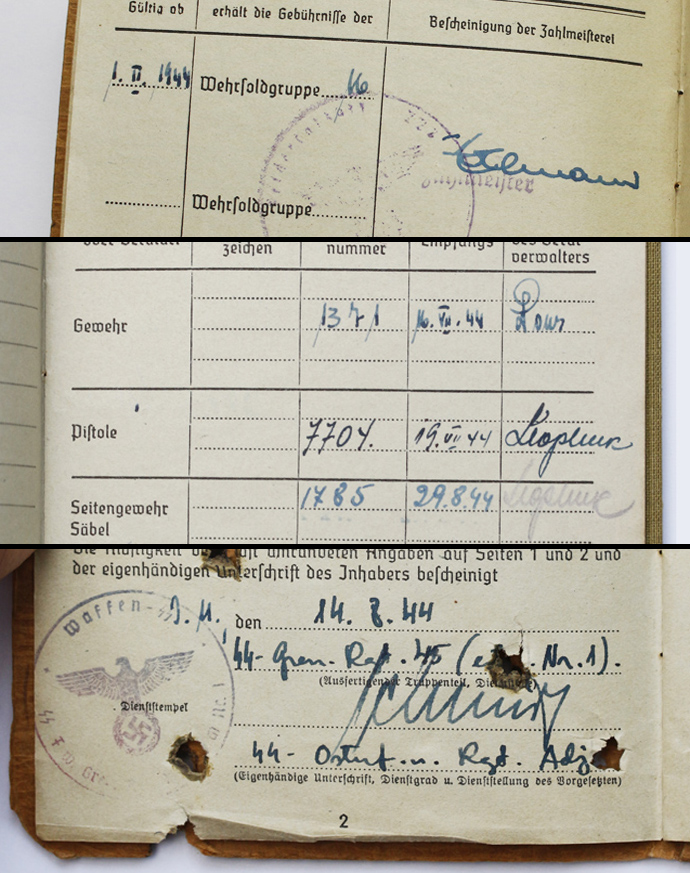 Gültig ab erhält die Gebührnisse der Bescheinigung der Zahlmeisterei
1. II. 1944 Wehrsoldgruppe 16
Zahlmeister
Wehrsoldgruppe
zeichen nummer Empfangs des Gerät
verwalters
Gewehr 1371 16. VII. 44
Pistole 7704. 19. VII 44
Seitengewehr 1785 29.8.44
Säbel
Angaben auf Seiten 1 und 2 und
der eigenhändigen Unterschrift des Inhabers bescheinigt
Waffen-SS
den 14. 8. 44
SS-Gren. Rgt. 45 (Nr. 1).
(Ausfertigender Truppenteil,
Dienststempel
SS-Ostuf. u. Rgt. Adj
(Eigenhändige Unterschrift, Dienstgrad u. Dienststellung des Vorgesetzten)
2